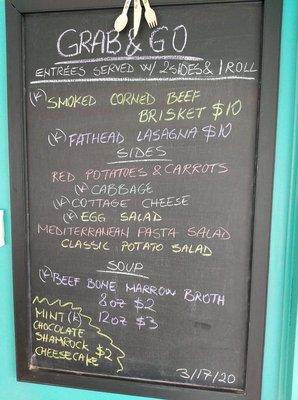 GRAB & GO
ENTRÉES SERVED W/ 2 SIDES & 1 ROLL
(K) SMOKED CORNED BEEF
BRISKET $10
(K) FATHEAD LASAGNA $10
SIDES
RED POTATOES & CARROTS
(K) CABBAGE
(K) COTTAGE CHEESE
(K) EGG SALAD
MEDITERRANEAN PASTA SALAD
CLASSIC POTATO SALAD
SOUP
(K) BEEF BONE MARROW BROTH
8oz $2
12oz $3
MINT (K)
CHOCOLATE
SHAMROCK $2
CHEESECAKE
3/17/20